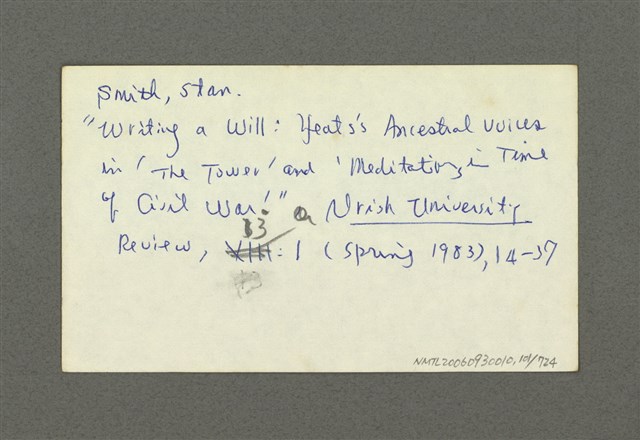 Smith, Stan.
"Writing a Will: Yeats's Ancestral Voices
in 'The Tower' and 'Meditations in Time
of Civil War.'" Irish University
13
Review, XIII: 1 (Spring 1983), 14-37
NMTL20060930010, 10/724